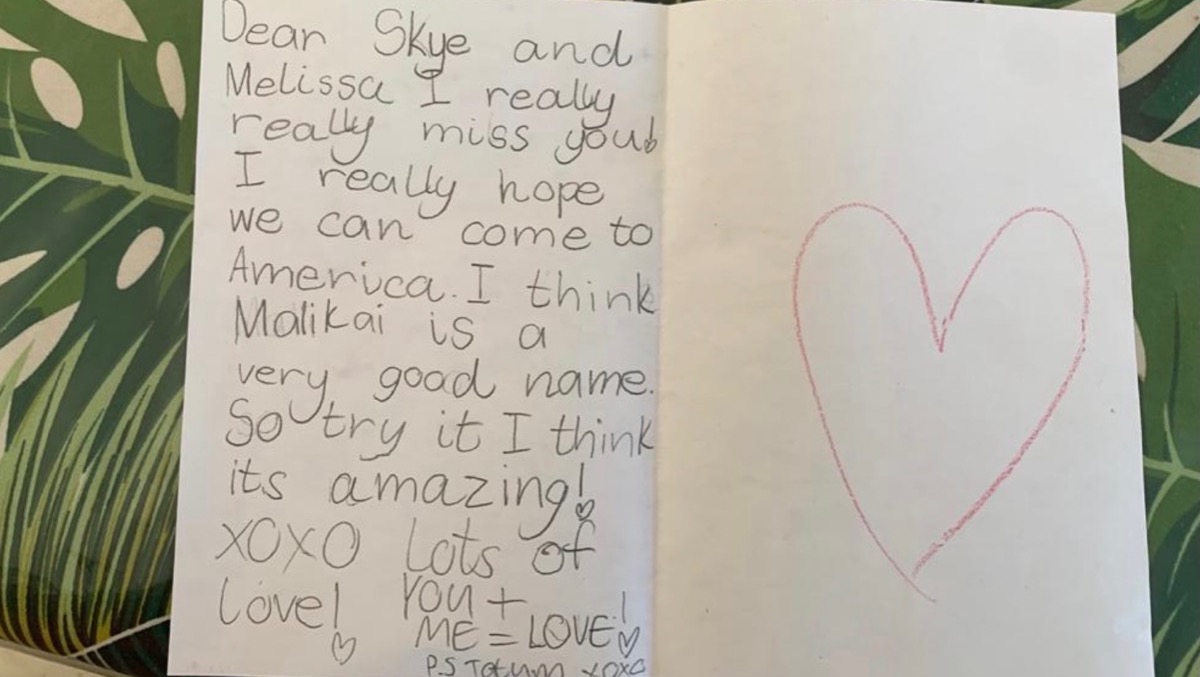 Dear Skye and
Melissa I really
really miss you!
I really hope
we can come to
America. I think
Malikai is a
very good name.
So try it I think
its amazing!
XOXO Lots of
Love! You +
ME = LOVE!
P.S Tatum xoxo